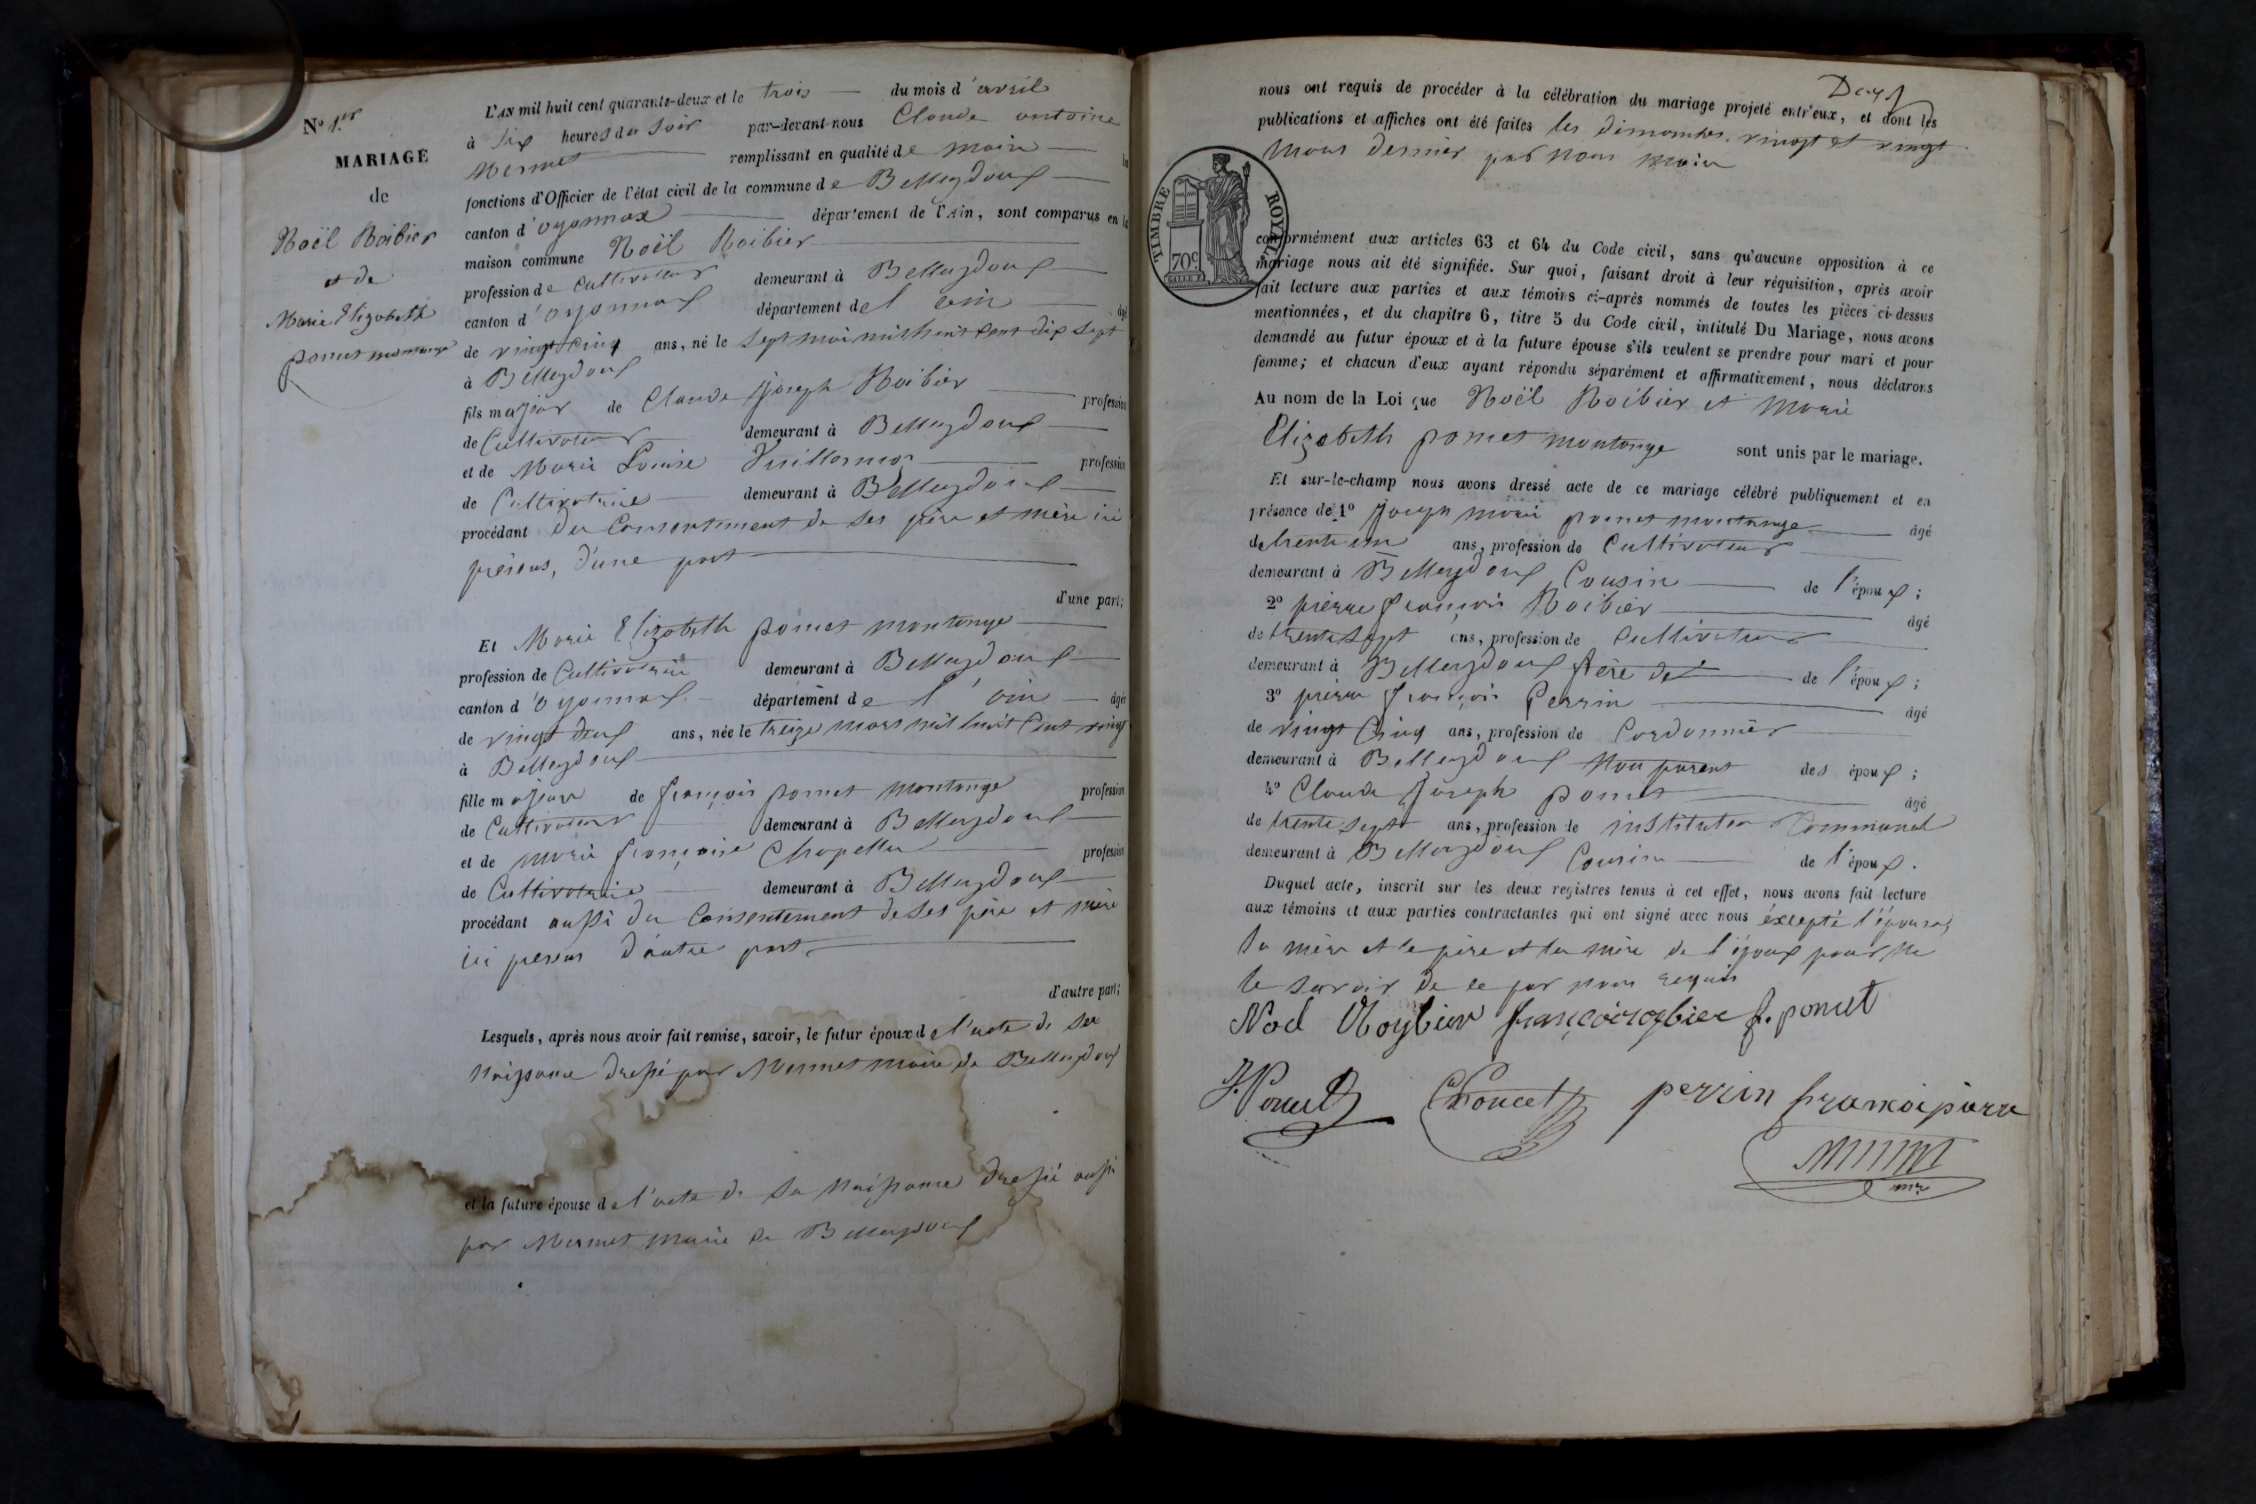 N° 1er
MARIAGE
de
Noël Roibier
et de
Marie Elizabeth
pomet montange
L'AN mil huit cent quarante-deux et le trois du mois d'avril
à six heures du soir par-devant nous Claude antoine
Mermet remplissant en qualité de maire
fonctions d'Officier de l'état civil de la commune de Belleydoux
canton d'oyonnax département de l'Ain, sont comparus en la
maison commune Noël Roibier
profession de Cultivateur demeurant à Belleydoux
canton d'oyonnax département de l'ain âgé
de vingt Cinq ans, né le sept mai mil huit Cent dix sept
à Belleydoux
fils majeur de Claude Joseph Roibier profession
de Cultivateur demeurant à Belleydoux
et de Marie Louise Vuillermoz profession
de Cultivatrice demeurant à Belleydoux
procédant du Consentement de ses père et mère ici
présens, d'une part
d'une part;
Et Marie Elizabeth pomet montange
profession de Cultivatrice demeurant à Belleydoux
canton d'oyonnax département de l'ain âgée
de vingt deux ans, née le treize mars mil huit Cent vingt
à Belleydoux
fille majeure de françois pomet montange profession
de Cultivateur demeurant à Belleydoux
et de marie françoise Chapellu profession
de Cultivatrice demeurant à Belleydoux
procédant aussi du Consentement de ses père et mère
ici presens d'autre part
d'autre part;
Lesquels, après nous avoir fait remise, savoir, le futur époux de l'acte de sa
Naissance dressé par Mermet maire de Belleydoux
et la future épouse de l'acte de sa Naissance dressé aussi
par Mermet maire de Belleydoux
nous ont requis de procéder à la célébration du mariage projeté entr'eux, et dont les
publications et affiches ont été faites les dimanches vingt et vingt
mars dernier par nous maire
TIMBRE ROYAL
70c
conformément aux articles 63 et 64 du Code civil, sans qu'aucune opposition à ce
mariage nous ait été signifiée. Sur quoi, faisant droit à leur réquisition, après avoir
fait lecture aux parties et aux témoins ci-après nommés de toutes les pièces ci-dessus
mentionnées, et du chapitre 6, titre 5 du Code civil, intitulé Du Mariage, nous avons
demandé au futur époux et à la future épouse s'ils veulent se prendre pour mari et pour
femme; et chacun d'eux ayant répondu séparément et affirmativement, nous déclarons
Au nom de la Loi que Noël Roibier et Marie
Elizabeth pomet montange sont unis par le mariage.
Et sur-le-champ nous avons dressé acte de ce mariage célébré publiquement et en
présence de 1° Joseph marie pomet montange âgé
de trente un ans, profession de Cultivateur
demeurant à Belleydoux Cousin de l'époux;
2° pierre françois Roibier âgé
de trente sept ans, profession de Cultivateur
demeurant à Belleydoux frère de l'époux;
3° pierre françois Perrin âgé
de vingt Cinq ans, profession de Cordonnier
demeurant à Belleydoux Non parent des époux;
4° Claude Joseph pomet âgé
de trente sept ans, profession de instituteur Communal
demeurant à Belleydoux Cousin de l'époux.
Duquel acte, inscrit sur les deux registres tenus à cet effet, nous avons fait lecture
aux témoins et aux parties contractantes qui ont signé avec nous excepté l'épouse,
sa mère et le père et la mère de l'époux pour ne
le savoir de ce par nous requis
Noel Roybier françois roybier f. pomet
J. Pomet C Poncet perrin françoi piere
Mermet
mre